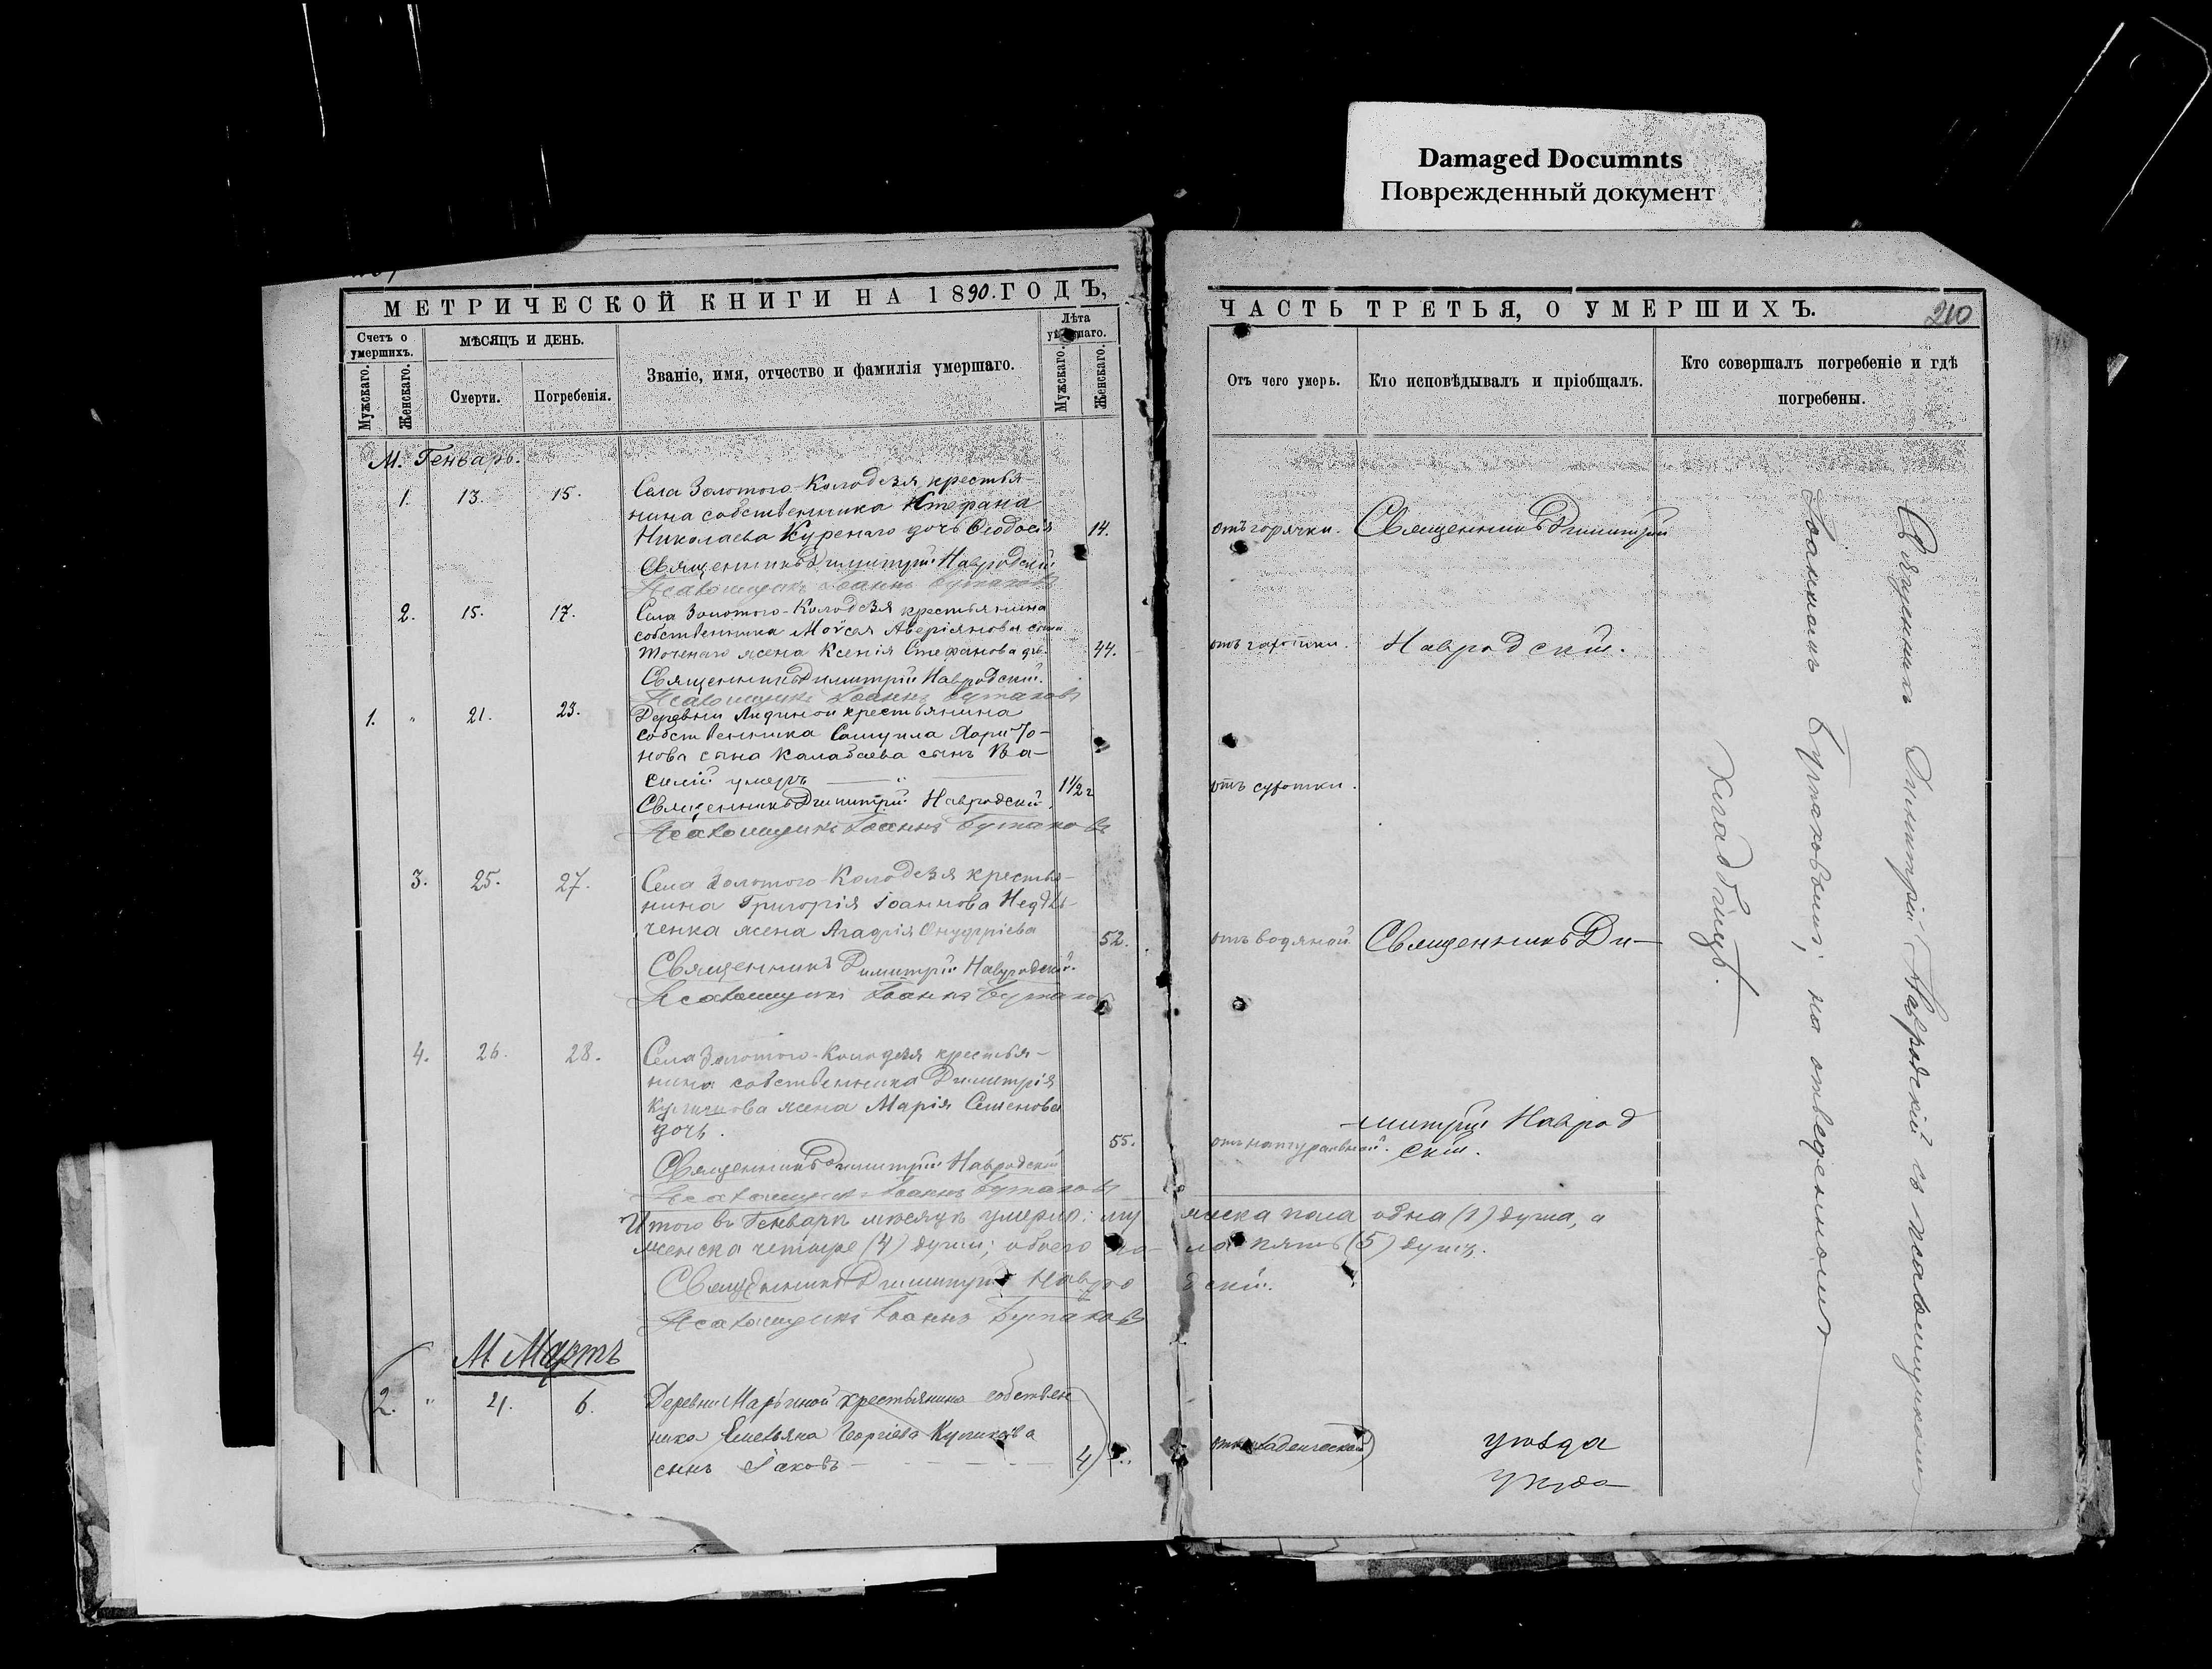 Damaged Documnts
Поврежденный документ
МЕТРИЧЕСКОЙ КНИГИ НА 1890 ГОДЪ,
Счетъ о умершихъ.
Мужскаго.
Женскаго.
МѢСЯЦЪ И ДЕНЬ.
Смерти.
Погребенія.
Званіе, имя, отчество и фамилія умершаго.
Лѣта
Мужскаго.
Женскаго.
М. Генварь.
1. 13. 15. Села Золотого-Колодезя крестья-
нина собственника Стефана
Николаева Куренаго дочь Ѳеодосія 14.
Священникъ Димитрій Навродскій
Псаломщикъ Іоаннъ Бутаковъ
2. 15. 17. Села Золотого-Колодезя крестьянина
собственника Моѵсея Аверіянова сына
жена Ксенія Стефанова 44.
Священникъ Димитрій Навродскій.
Псаломщикъ Іоаннъ Бутаковъ
1. " 21. 23. Деревни крестьянина
собственника Самуила Харито-
нова сына Калабаева сынъ Ва-
силій умеръ — " — 1 1/2 г
Священникъ Димитрій Навродскій
Псаломщикъ Іоаннъ Бутаковъ
3. 25. 27. Села Золотого-Колодезя крестья-
нина Григорія Іоаннова
ченка жена Агафія Онуфріева 52.
Священникъ Димитрій Навродскій.
Псаломщикъ Іоаннъ Бутаковъ
4. 26. 28. Села Золотого-Колодезя крестья-
нина собственника Димитрія
жена Марія Семенова
дочь. 55.
Священникъ Димитрій Навродскій
Псаломщикъ Іоаннъ Бутаковъ
Итого въ Генварѣ мѣсяцѣ умерло: му
женска четыре (4) души; обоего по-
Священникъ Димитрій Навро
Псаломщикъ Іоаннъ Бутаковъ
М Мартъ
2. " 4. 6. Деревни Марьиной крестьянина собствен
ника Емельяна Георгіева Куликова
сынъ Іаковъ — 4
ЧАСТЬ ТРЕТЬЯ, О УМЕРШИХЪ.
210
Отъ чего умеръ.
Кто исповѣдывалъ и пріобщалъ.
Кто совершалъ погребеніе и гдѣ
погребены.
отъ горячки. Священникъ Димитрій
отъ Навродскій.
отъ сухотки.
отъ водяной. Священникъ Ди-
митрій Наврод
отъ натуральной. скій.
жеска пола одна (1) душа, а
ла пять (5) душъ.
дскій.
отъ младенческой
уѣзда
Священникъ Димитрій Навродскій съ псаломщикомъ
Іоанномъ Бутаковымъ, на отведенномъ
кладбищѣ.